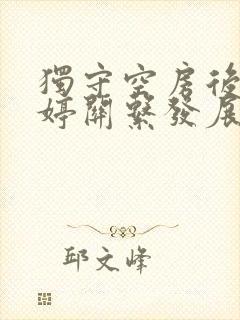 獨守空房後
婷關繫發展
邱文峰